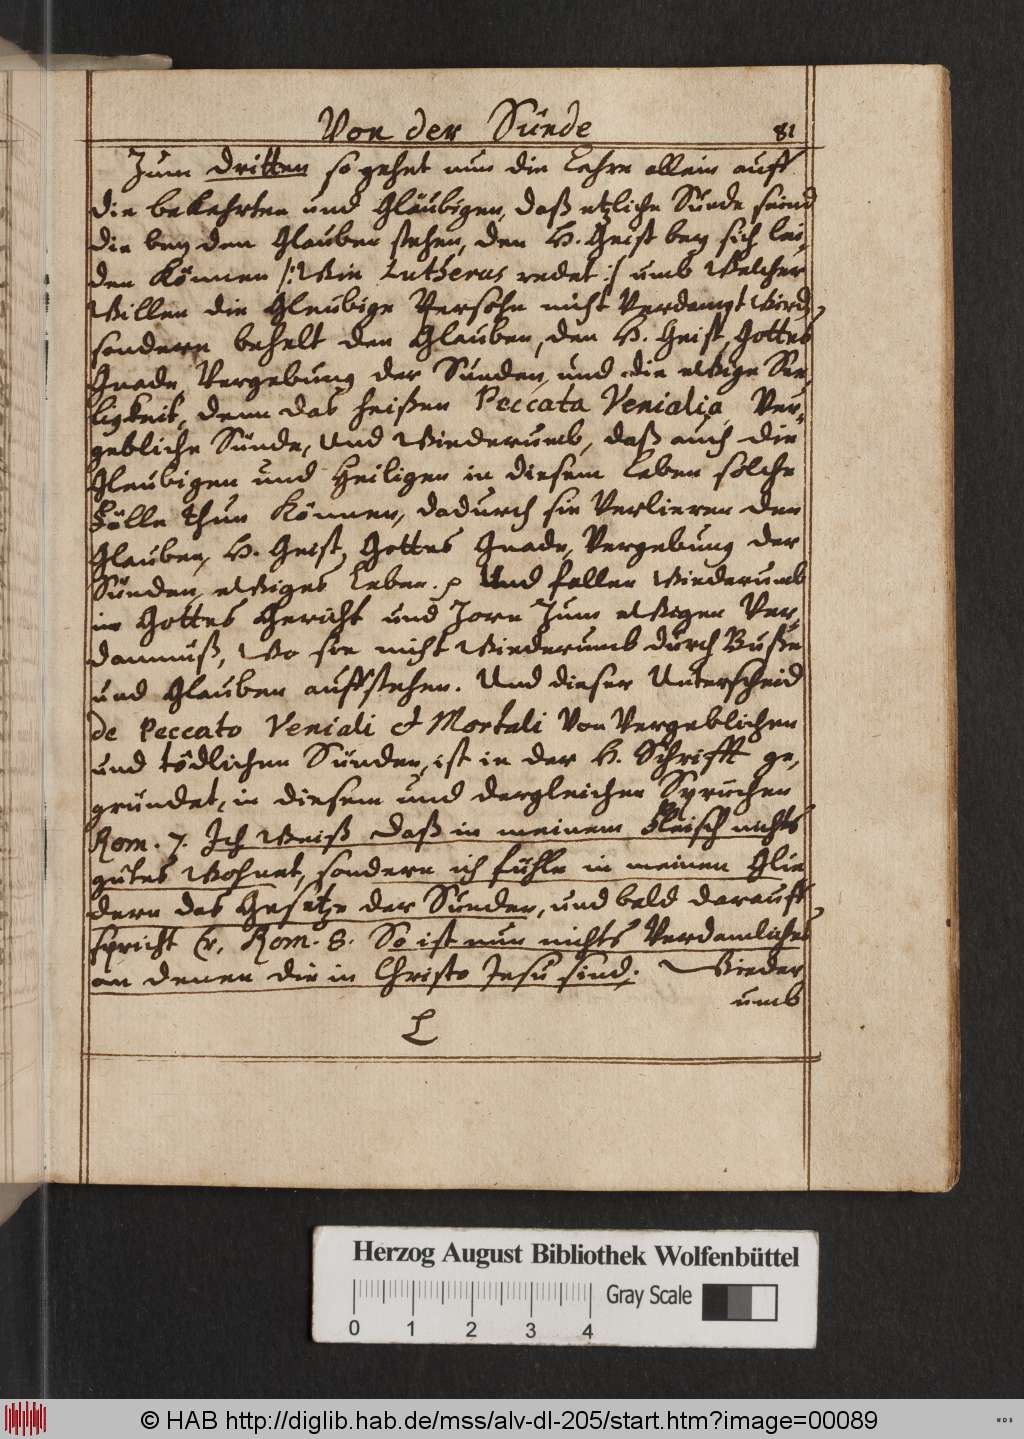 Von der Sünde
81
Zum dritten so gehet nun die Lehre allein auff
die bekehrten und Gläubigen, daß etzliche Sünde seind
die bey den Glauben stehen, den H. Geist bey sich lei,
den können /: wie Lutherus redet :/ umb welcher
willen die Gleubige Persohn nicht verdampt wird,
sondern behelt den Glauben, den H. Geist, Gottes
Gnade, Vergebung der Sünden, und die ewige See,
ligkeit, denn das heißen Peccata Venialia, Ver-
gebliche Sünde, Und wiederumb, daß auch die
Gleubigen und Heiligen in diesem Leben solche
Fälle thun können, dadurch sie verlieren den
Glauben, H. Geist, Gottes Gnade, Vergebung der
Sünden, ewiges Leben. p Und fallen wiederumb
in Gottes Gericht und Zorn Zum ewigen Ver-
damnuß, wo sie nicht wiederumb durch Buße
und Glauben auffstehen. Und dieser Unterscheid
de Peccato Veniali & Mortali von vergeblichen
und tödlichen Sünden, ist in der H. Schrifft ge,
gründet, in diesem und dergleichen Sprüchen
Rom. 7. Ich weiß daß in meinem Fleisch nichts
gutes wohnet, sondern ich fühle in meinen Glie
dern das Gesetze der Sünden, und bald darauff
spricht Er, Rom. 8. So ist nun nichts verdamliches
an denen die in Christo Jesu sind; Wieder
umb
L
Herzog August Bibliothek Wolfenbüttel
Gray Scale
0 1 2 3 4
© HAB http://diglib.hab.de/mss/alv-dl-205/start.htm?image=00089